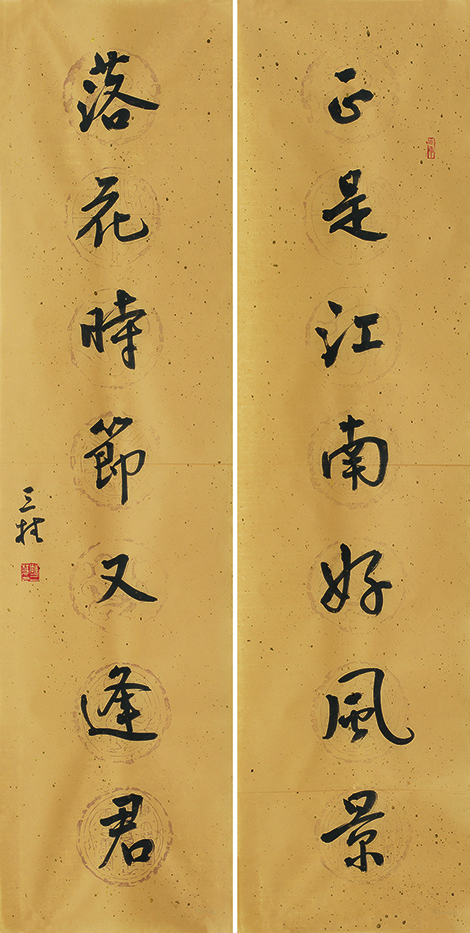 正是江南好風景
落花時節又逢君
三桂